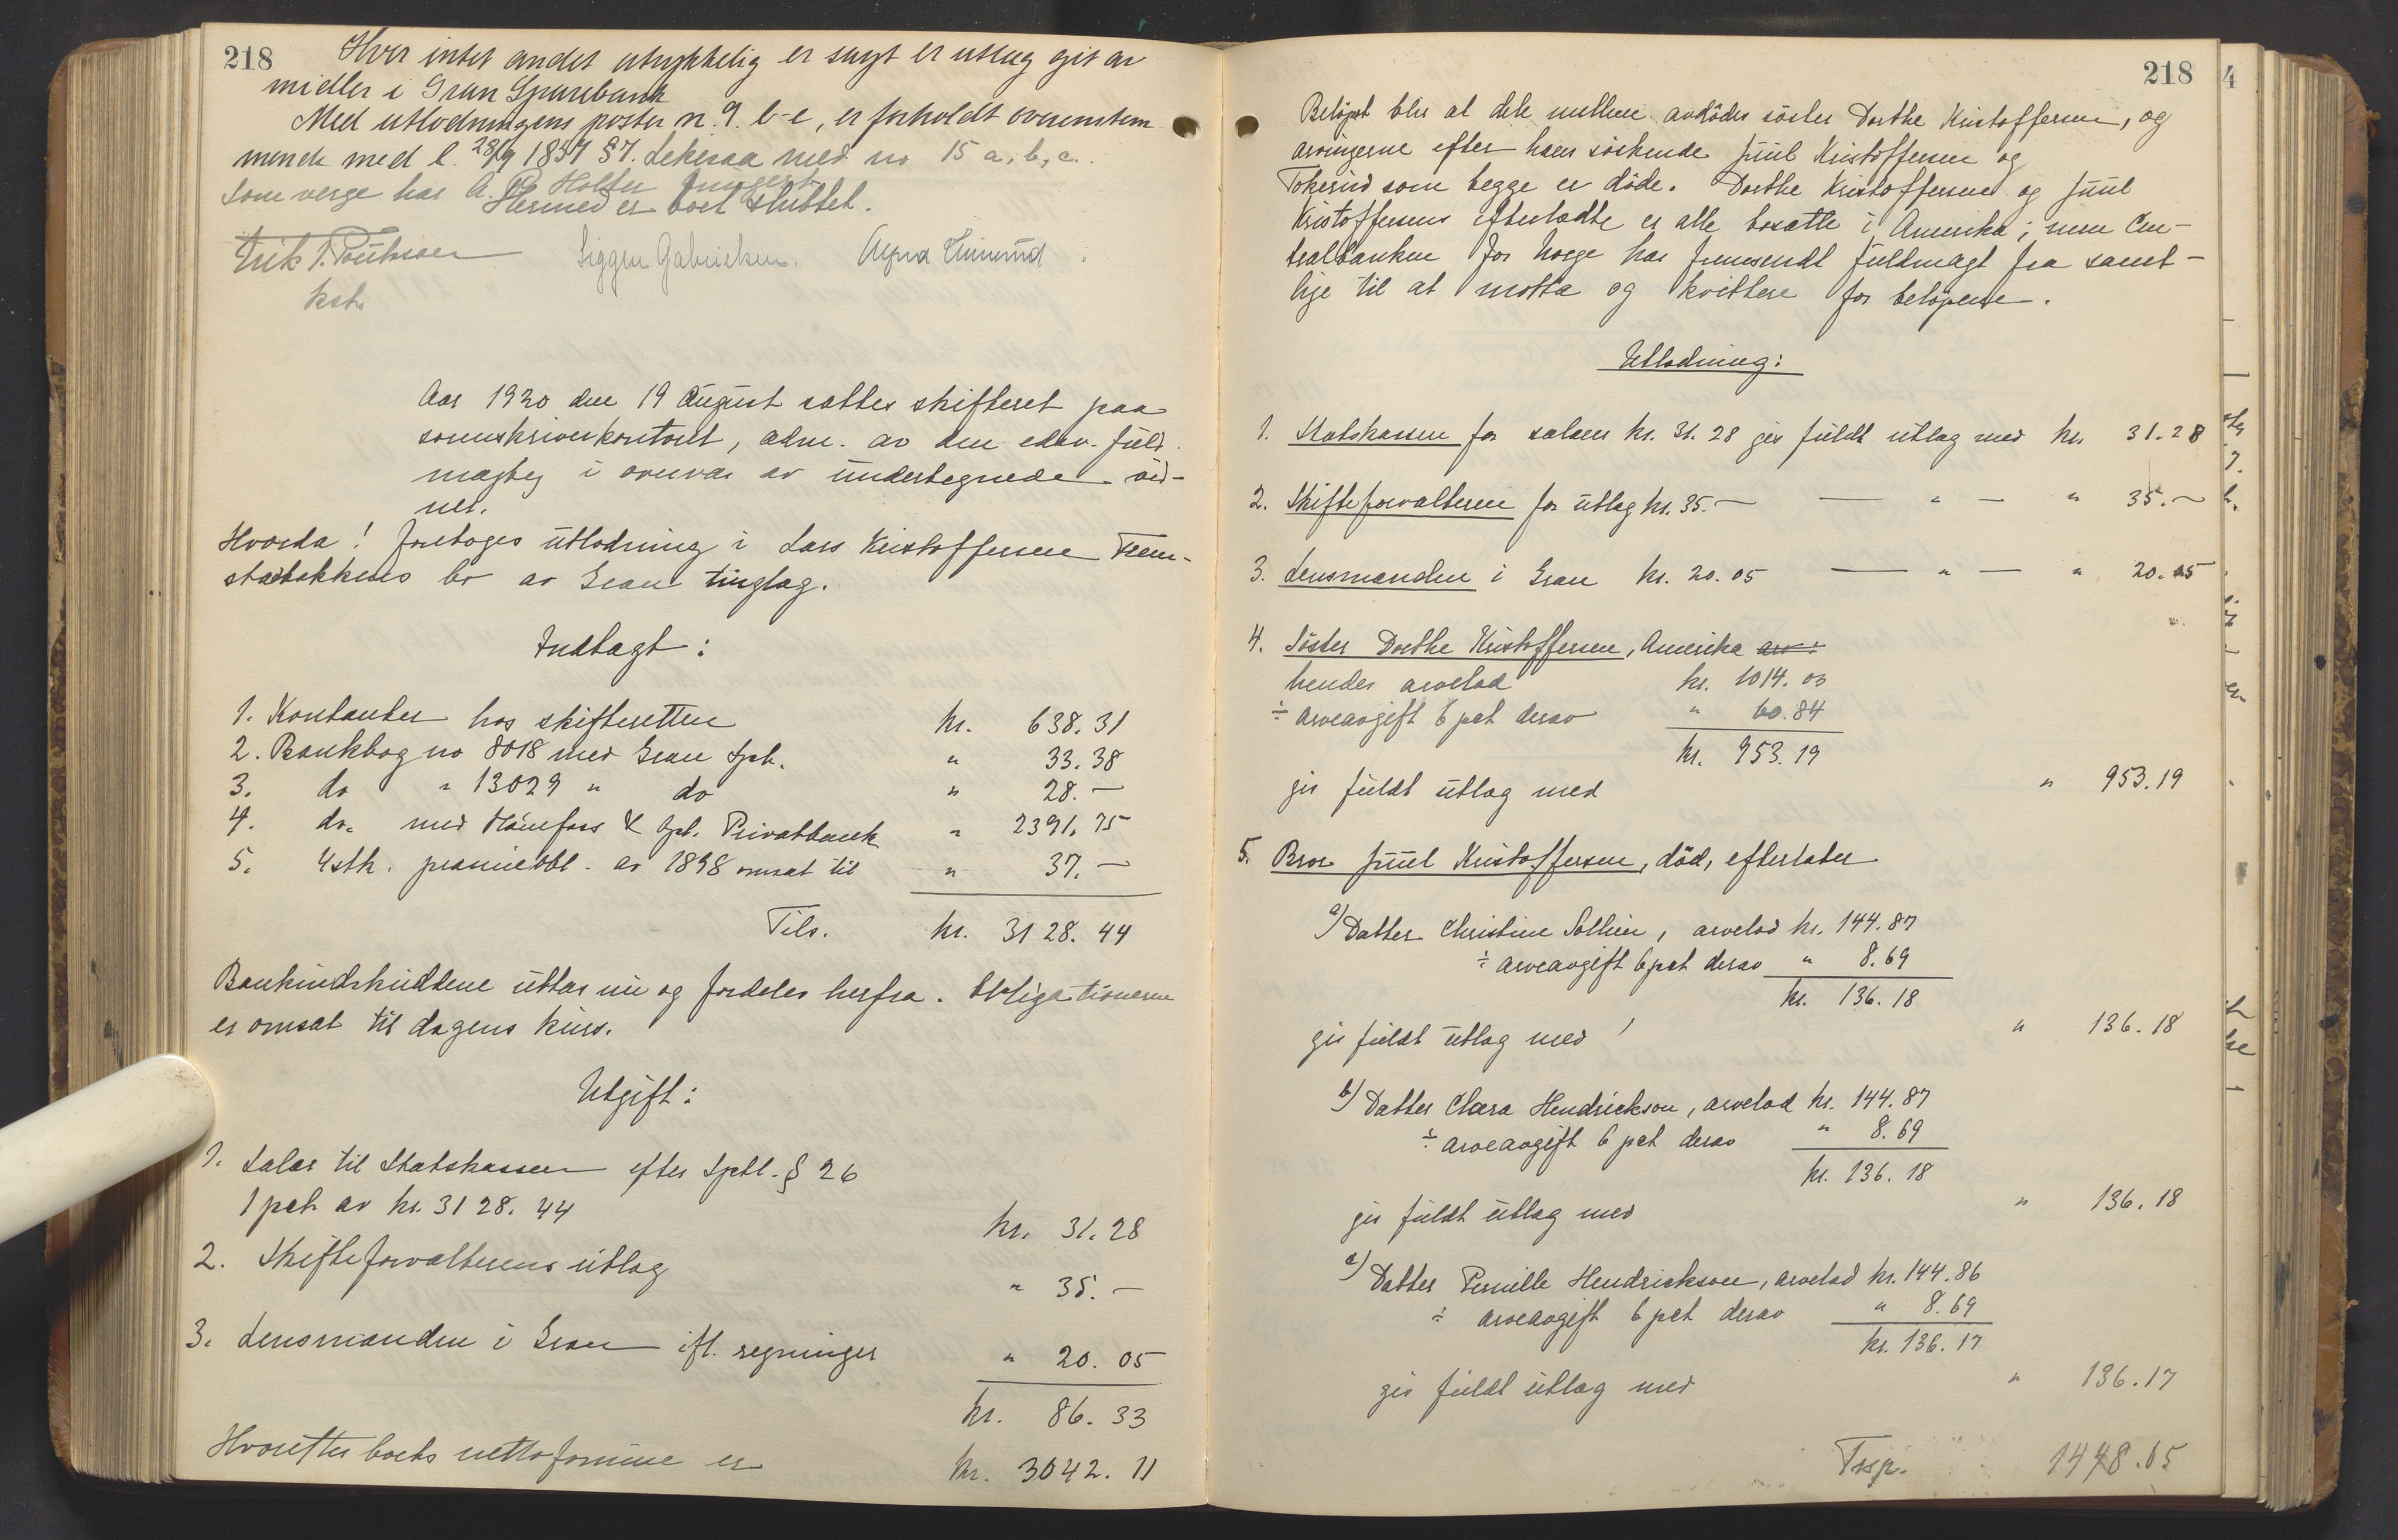 218
Hvor intet andet utrykkelig er sagt er utlæg git av
midler i Gran Sparebank
Med utlodningens poster n. 9. b-e, er forholdt overenstem
mende med l. 28/9 1857 § 7. Lekesaa med no 15 a, b, c.
som verge har A. Holter fungert
Hermed er boet sluttet.
Erik T. Poulsson Siggen Gabrielsen. Alfred
kst.
Aar 1920 den 19 August sattes skifteret paa
sorenskriverkontoret, adm. av den edsv. fuld
mægtig i overvær av undertegnede vid-
ner.
Hvorda! foretoges utlodning i Lars Kristoffersen Trem-
stadbakkens bo av Gran tinglag.
Indtægt:
1. Kontanter hos skifteretten kr. 638.31
2. Bankbog no 8018 med Gran Spb. " 33.38
3. do " 13029 " do " 28.—
4. do. med Hønefoss & Opl. Privatbank " 2391.75
5. 4 stk. præmieobl. av 1898 omsat til " 37.—
Tils. kr. 3128.44
Bankindskuddene uttas nu og fordeles herfra. Obligationerne
er omsat til dagens kurs.
Utgift:
1. Salær til Statskassen efter Sptl. § 26
1 pct av kr. 3128.44 kr. 31.28
2. Skifteforvalterens utlæg " 35.—
3. Lensmanden i Gran ifl. regninger " 20.05
kr. 86.33
Hvorefter boets nettoformue er kr. 3042.11
218
Beløpet blir at dele mellem avdødes søster Dorthe Kristoffersen, og
arvingerne efter hans søskende Juul Kristoffersen og
Tokerud som begge er døde. Dorthe Kristoffersen og Juul
Kristoffersens efterladte er alle bosatte i Amerika; men Cen-
tralbanken for Norge har fremsendt fuldmagt fra samt-
lige til at motta og kvittere for beløpene.
Utlodning:
1. Statskassen for salær kr. 31.28 gis fuldt utlæg med kr. 31.28
2. Skifteforvalteren for utlæg kr. 35.— — " — " 35.—
3. Lensmanden i Gran kr. 20.05 — " — " 20.05
4. Søster Dorthe Kristoffersen, Amerika arv:
hendes arvelod kr. 1014.03
÷ arveavgift 6 pct derav " 60.84
kr. 953.19
gis fuldt utlæg med " 953.19
5. Bror Juul Kristoffersen, död, efterlater
a) Datter Christine Sollien, arvelod kr. 144.87
÷ arveavgift 6 pct derav " 8.69
kr. 136.18
gis fuldt utlæg med " 136.18
b) Datter Clara Hendrickson, arvelod kr. 144.87
÷ arveavgift 6 pct derav " 8.69
kr. 136.18
gis fuldt utlæg med " 136.18
c) Datter Pernille Hendrickson, arvelod kr. 144.86
÷ arveavgift 6 pct derav " 8.69
kr. 136.17
gis fuldt utlæg med " 136.17
Trsp. 1448.05
4